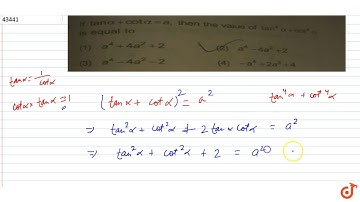 43441
If tanα + cotα = a, then the value of tan⁴α + cot⁴α
is equal to
(1) a⁴ + 4a² + 2 (2) a⁴ - 4a² + 2
(3) a⁴ - 4a² - 2 (4) -a⁴ + 2a² + 4
tanα = 1/cotα
cotα × tanα = 1
(tanα + cotα)² = a²
tan⁴α + cot⁴α
⇒ tan²α + cot²α + 2 tanα cotα = a²
⇒ tan²α + cot²α + 2 = a²